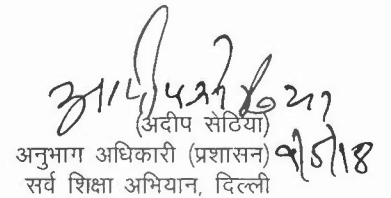 (अदीप सेठिया)
अनुभाग अधिकारी (प्रशासन)
सर्व शिक्षा अभियान, दिल्ली